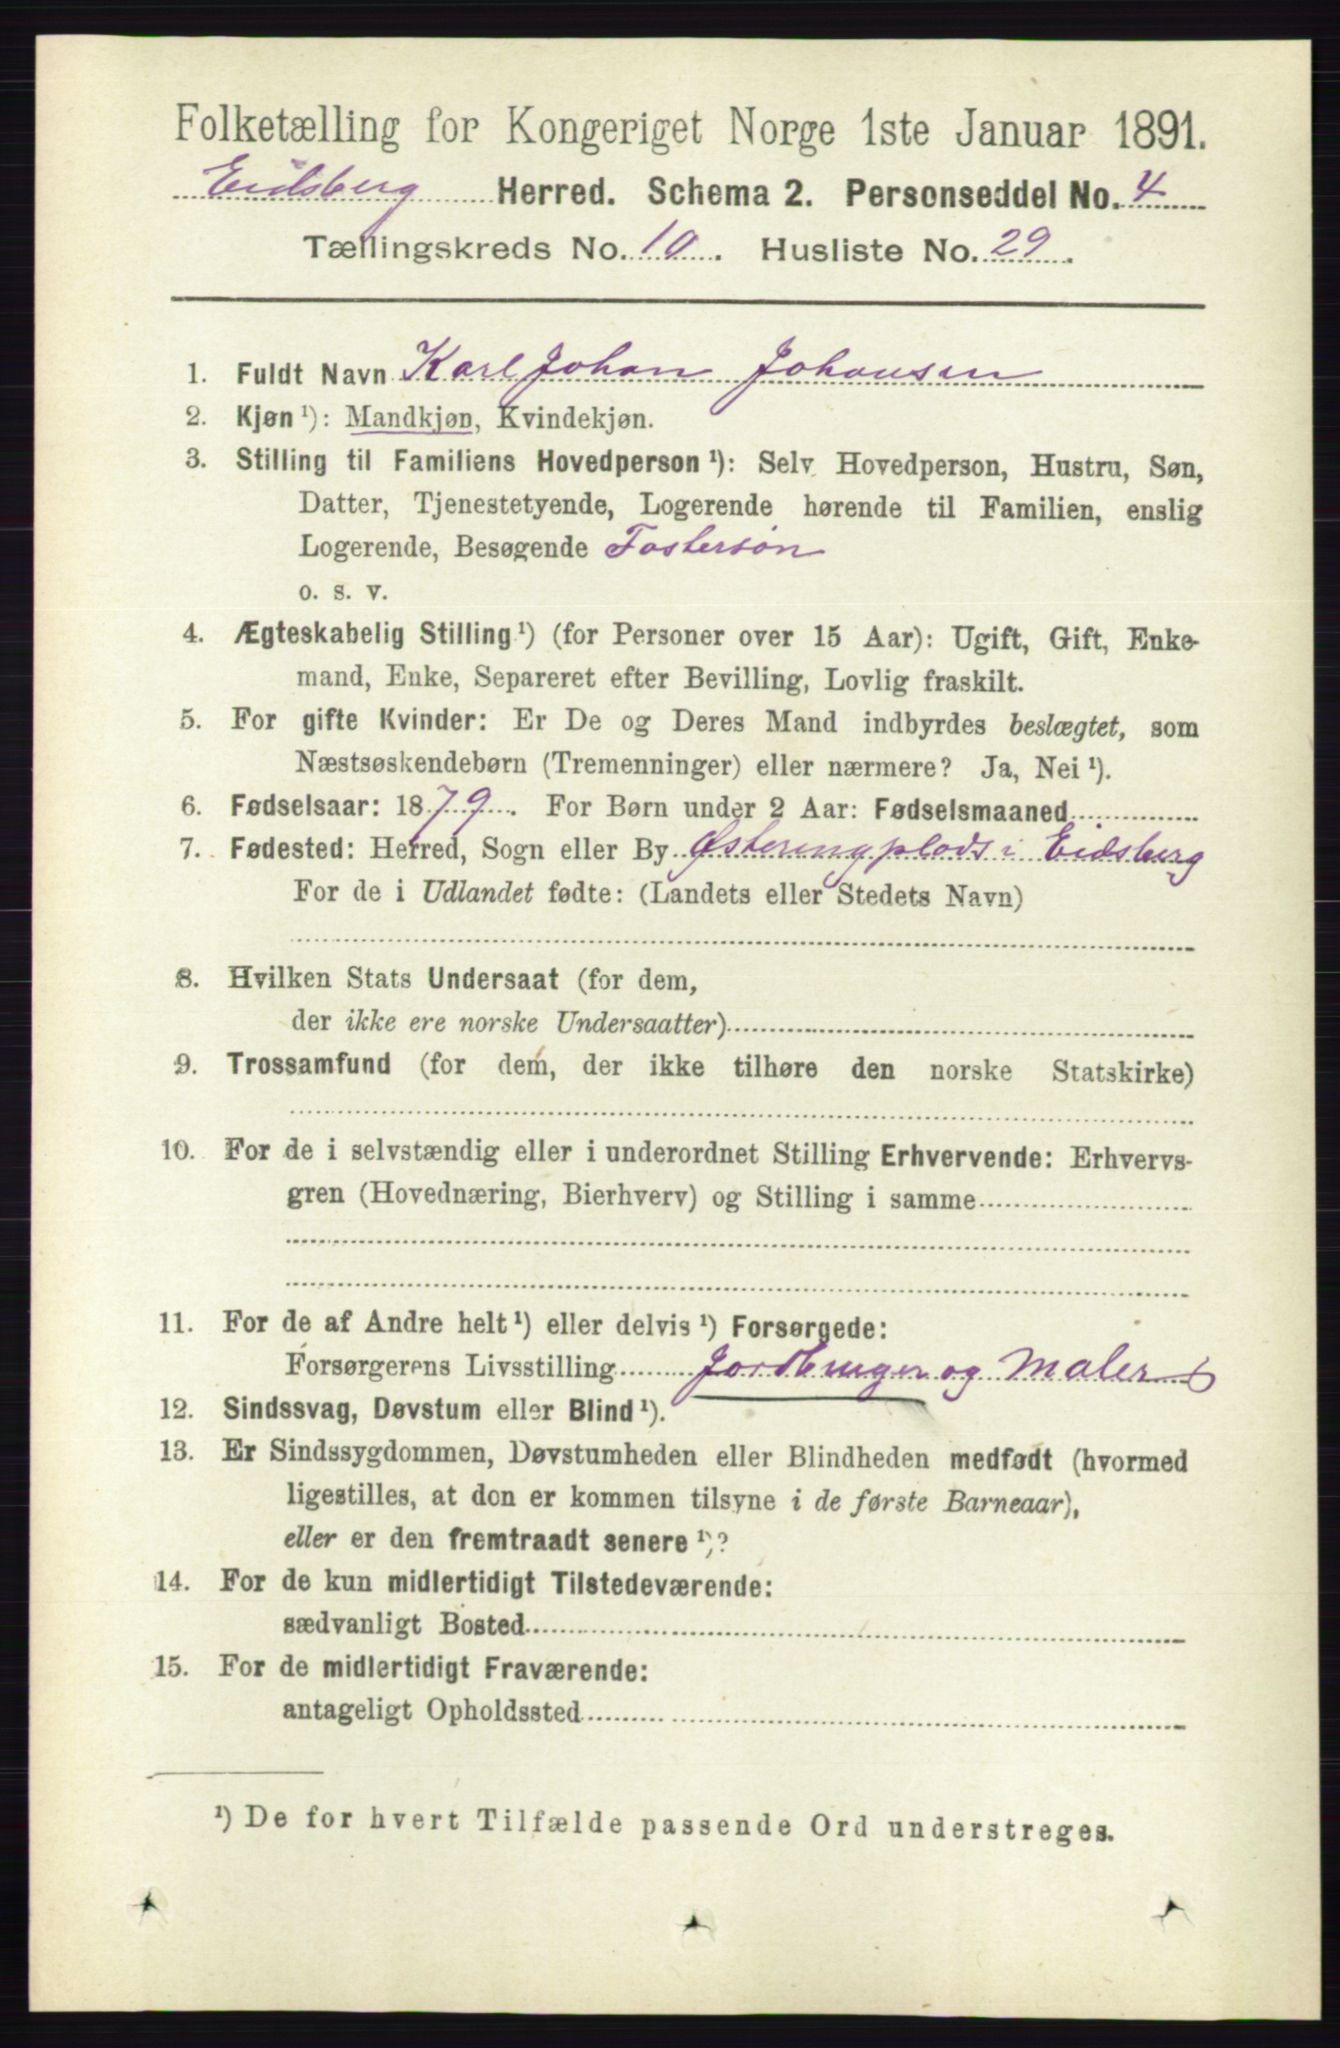 Folketælling for Kongeriget Norge 1ste Januar 1891.
Eidsberg Herred. Schema 2. Personseddel No. 4
Tællingskreds No. 10. Husliste No. 29.
1. Fuldt Navn Karl Johan Johansen
2. Kjøn ¹): Mandkjøn, Kvindekjøn.
3. Stilling til Familiens Hovedperson ¹): Selv Hovedperson, Hustru, Søn,
Datter, Tjenestetyende, Logerende hørende til Familien, enslig
Logerende, Besøgende Fostersøn
o. s. v.
4. Ægteskabelig Stilling ¹) (for Personer over 15 Aar): Ugift, Gift, Enke-
mand, Enke, Separeret efter Bevilling, Lovlig fraskilt.
5. For gifte Kvinder: Er De og Deres Mand indbyrdes beslægtet, som
Næstsøskendebørn (Tremenninger) eller nærmere? Ja, Nei ¹).
6. Fødselsaar: 1879. For Børn under 2 Aar: Fødselsmaaned
7. Fødested: Herred, Sogn eller By Østereng plads i Eidsberg
For de i Udlandet fødte: (Landets eller Stedets Navn)
8. Hvilken Stats Undersaat (for dem,
der ikke ere norske Undersaatter)
9. Trossamfund (for dem, der ikke tilhøre den norske Statskirke)
10. For de i selvstændig eller i underordnet Stilling Erhvervende: Erhvervs-
gren (Hovednæring, Bierhverv) og Stilling i samme
11. For de af Andre helt ¹) eller delvis ¹) Forsørgede:
Forsørgerens Livsstilling Jordbruger og Maler
12. Sindssvag, Døvstum eller Blind ¹).
13. Er Sindssygdommen, Døvstumheden eller Blindheden medfødt (hvormed
ligestilles, at den er kommen tilsyne i de første Barneaar),
eller er den fremtraadt senere ¹)?
14. For de kun midlertidigt Tilstedeværende:
sædvanligt Bosted
15. For de midlertidigt Fraværende:
antageligt Opholdssted
¹) De for hvert Tilfælde passende Ord understreges.